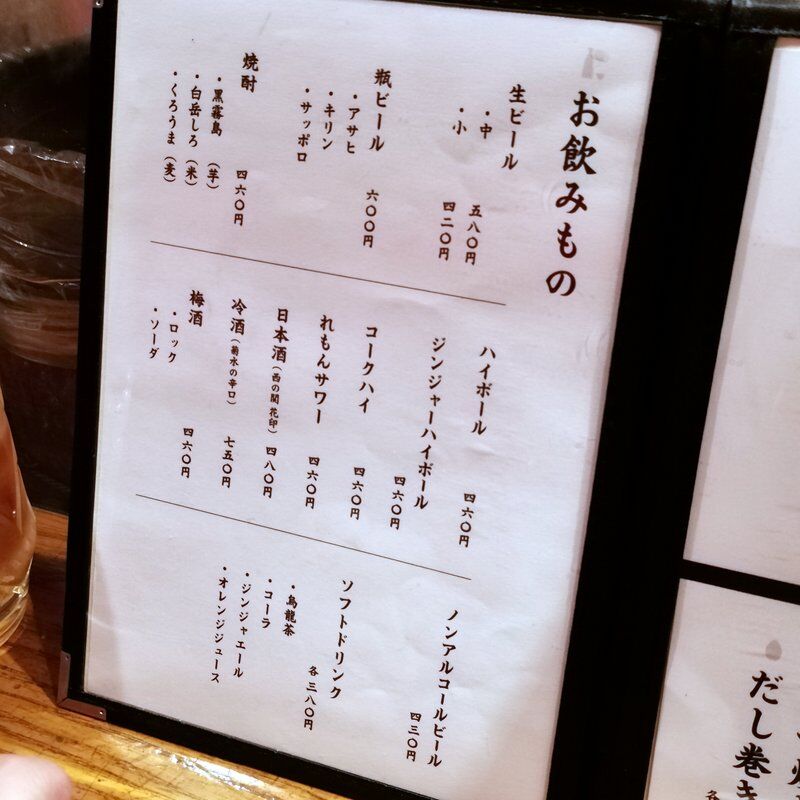 お飲みもの
生ビール
・中 五八〇円
・小 四二〇円
瓶ビール
・アサヒ
・キリン
・サッポロ
六〇〇円
焼酎 四六〇円
・黒霧島（芋）
・白岳しろ（米）
・くろうま（麦）
ハイボール 四六〇円
ジンジャーハイボール 四六〇円
コークハイ 四六〇円
れもんサワー 四六〇円
日本酒（西の関 花印） 四八〇円
冷酒（菊水の辛口） 七五〇円
梅酒 四六〇円
・ロック
・ソーダ
ノンアルコールビール 四三〇円
ソフトドリンク 各三八〇円
・烏龍茶
・コーラ
・ジンジャエール
・オレンジジュース
だし巻き
各